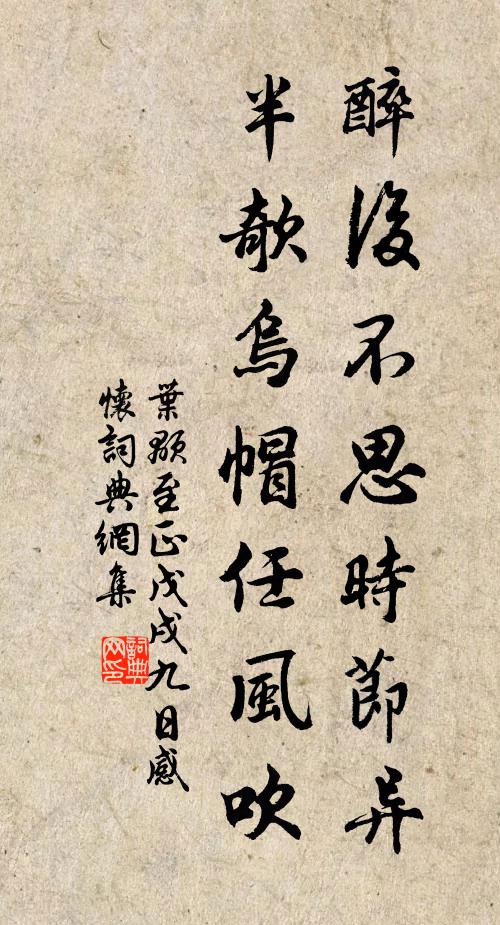 醉後不思時節异
半欹烏帽任風吹
葉顒至正戊戌九日感
懷詞典網集
詞典
网印